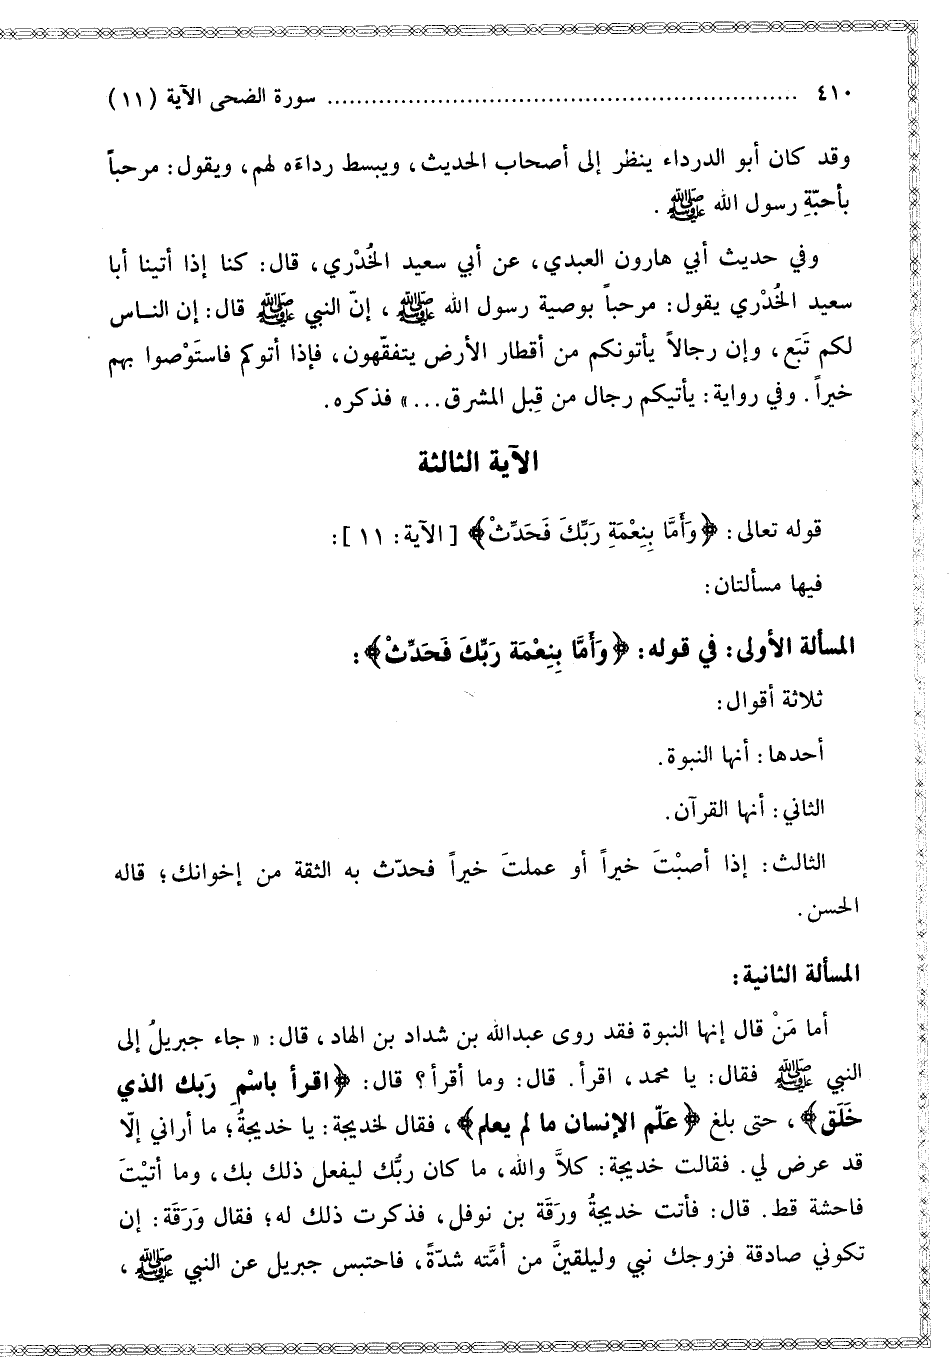 ٤١٠ ................................................................ سورة الضحى الآية (١١)
وقد كان أبو الدرداء ينظر إلى أصحاب الحديث، ويبسط رداءَه لهم، ويقول: مرحباً
بأحبّةِ رسول الله ﷺ .
وفي حديث أبي هارون العبدي، عن أبي سعيد الخُدْري، قال: كنا إذا أتينا أبا
سعيد الخُدْري يقول: مرحباً بوصية رسول الله ﷺ ، إنّ النبي ﷺ قال: إن الناس
لكم تَبَع، وإن رجالاً يأتونكم من أقطار الأرض يتفقّهون، فإذا أتوكم فاستَوْصوا بهم
خيراً. وفي رواية: يأتيكم رجال من قِبل المشرق...» فذكره.
الآية الثالثة
قوله تعالى: ﴿وَأَمَّا بِنِعْمَةِ رَبِّكَ فَحَدِّثْ﴾ [الآية: ١١]:
فيها مسألتان:
المسألة الأولى: في قوله: ﴿وَأَمَّا بِنِعْمَة رَبِّكَ فَحَدِّثْ﴾:
ثلاثة أقوال:
أحدها: أنها النبوة.
الثاني: أنها القرآن.
الثالث: إذا أصبْتَ خيراً أو عملتَ خيراً فحدّث به الثقة من إخوانك؛ قاله
الحسن.
المسألة الثانية:
أما مَنْ قال إنها النبوة فقد روى عبدالله بن شداد بن الهاد، قال: «جاء جبريلُ إلى
النبي ﷺ فقال: يا محمد، اقرأ. قال: وما أقرأ؟ قال: ﴿اقرأ باسْمِ رَبك الذي
خَلَق﴾، حتى بلغ ﴿عَلّم الإنسان ما لم يعلم﴾، فقال لخديجة: يا خديجةُ؛ ما أراني إلّا
قد عرض لي. فقالت خديجة: كلاَّ والله، ما كان ربُّك ليفعل ذلك بك، وما أتيْتَ
فاحشة قط. قال: فأتت خديجةُ ورَقَة بن نوفل، فذكرت ذلك له؛ فقال وَرَقَة: إن
تكوني صادقة فزوجك نبي وليلقينَّ من أمَّته شدّةً، فاحتبس جبريل عن النبي ﷺ ،